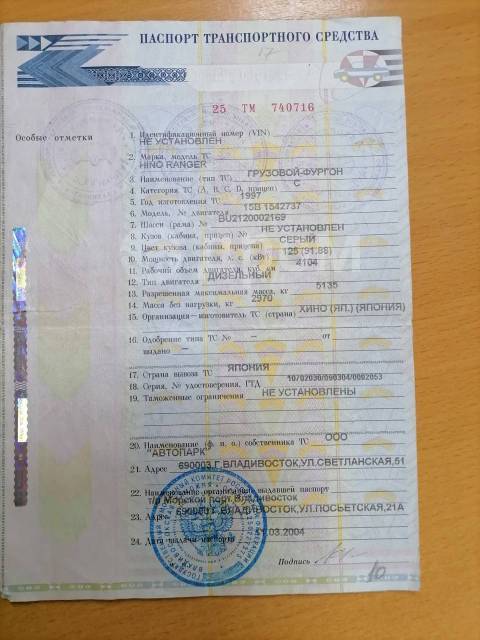 ПАСПОРТ ТРАНСПОРТНОГО СРЕДСТВА
17
25 ТМ 740716
Особые отметки
1. Идентификационный номер (VIN)
НЕ УСТАНОВЛЕН
2. Марка, модель ТС
HINO RANGER
3. Наименование (тип ТС) ГРУЗОВОЙ-ФУРГОН
4. Категория ТС (А, В, С, D, прицеп) С
5. Год изготовления ТС 1997
6. Модель, № двигателя 15В 1542737
7. Шасси (рама) № BU2120002169
8. Кузов (кабина, прицеп) № НЕ УСТАНОВЛЕН
9. Цвет кузова (кабины, прицепа) СЕРЫЙ
10. Мощность двигателя, л. с. (кВт) 125 (91.88)
11. Рабочий объем двигателя, куб. см 4104
12. Тип двигателя ДИЗЕЛЬНЫЙ
13. Разрешенная максимальная масса, кг 5135
14. Масса без нагрузки, кг 2970
15. Организация—изготовитель ТС (страна) ХИНО (ЯП.) (ЯПОНИЯ)
16. Одобрение типа ТС № — от
выдано —
17. Страна вывоза ТС ЯПОНИЯ
18. Серия, № удостоверения, ГТД 10702030/090304/0002053
19. Таможенные ограничения НЕ УСТАНОВЛЕНЫ
20. Наименование (ф. и. о.) собственника ТС ООО
"АВТОПАРК"
21. Адрес 690003,Г.ВЛАДИВОСТОК,УЛ.СВЕТЛАНСКАЯ,51
22. Наименование организации, выдавшей паспорт
т/п Морской порт Владивосток
23. Адрес Г.ВЛАДИВОСТОК,УЛ.ПОСЬЕТСКАЯ,21А
24. Дата выдачи паспорта .03.2004
Подпись
10